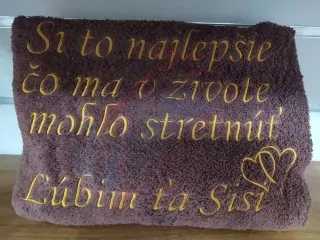 Si to najlepšie
čo ma v živote
mohlo stretnúť
Ľúbim ťa Sisi